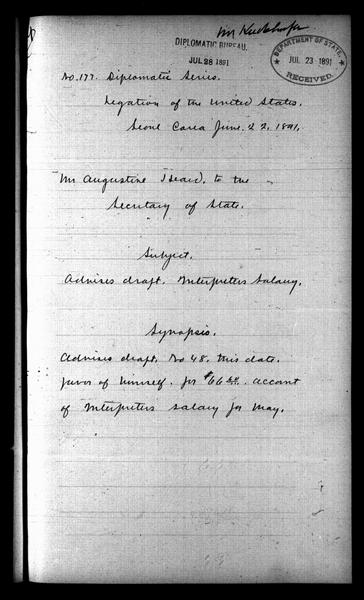 DIPLOMATIC BUREAU.
JUL 28 1891
DEPARTMENT OF STATE,
JUL 23 1891
RECEIVED.
No. 177. Diplomatic Series.
Legation of the United States.
Seoul Corea June. 22, 1891,
Mr Augustine Heard, to the
Secretary of State.
Subject.
Advises draft. Interpreters Salary.
Synopsis.
Advises draft. No 48. this date.
favor of himself. for $66. account
of Interpreters salary for May.